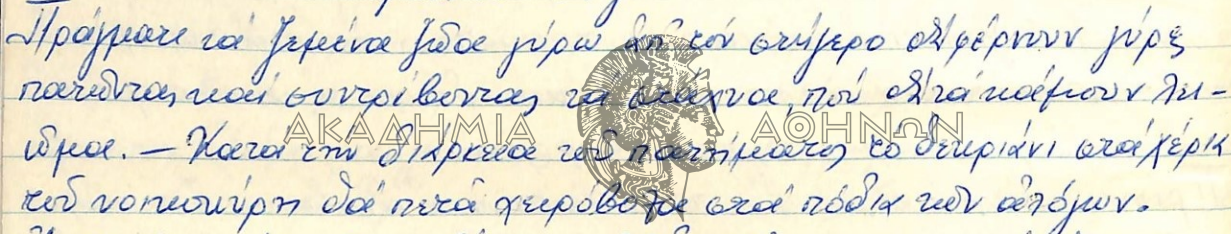 Πράγματι τά ζεμένα ζῶα γύρω ἀπ' τόν στύγερο θά φέρνουν γύρες
πατῶντας καί συντρίβοντας τά στάχυα, πού θά τά κάμουν λει-
ῶμα. – Κατά τήν διάρκεια τοῦ πατήματος τό δικριάνι στά χέρια
τοῦ νοικοκύρη θά πετᾶ χειρόβολα στά πόδια τῶν ἀλόγων.
ΑΚΑΔΗΜΙΑ ΑΘΗΝΩΝ